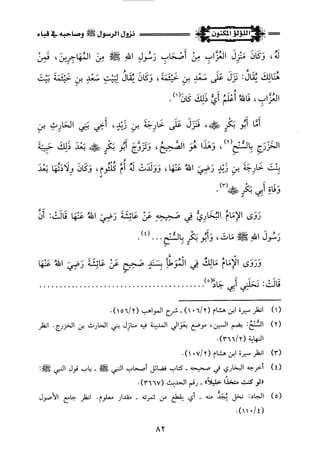 اللؤلؤ المكنون
نزول الرسول ﷺ وصاحبه في قباء
لَهُ، وَكَانَ مَنْزِلَ العُزَّابِ مِنْ أَصْحَابِ رَسُولِ اللهِ ﷺ مِنَ المُهَاجِرِينَ، فَمِنْ
هُنَالِكَ يُقَالُ: نَزَلَ عَلَى سَعْدِ بنِ خَيْثَمَةَ، وَكَانَ يُقَالُ لِبَيْتِ سَعْدِ بنِ خَيْثَمَةَ بَيْتُ
العُزَّابِ، فَاللهُ أَعْلَمُ أَيُّ ذَلِكَ كَانَ(١).
أَمَّا أَبُو بَكْرٍ ﷺ، فَنَزَلَ عَلَى خَارِجَةَ بنِ زَيْدٍ، أَخِي بَنِي الحَارِثِ بنِ
الخَزْرَجِ بِالسُّنْحِ(٢)، وَهَذَا هُوَ الصَّحِيحُ، وَتَزَوَّجَ أَبُو بَكْرٍ ﷺ بَعْدَ ذَلِكَ حَبِيبَةَ
بِنْتَ خَارِجَةَ بنِ زَيْدٍ رَضِيَ اللهُ عَنْهَا، وَوَلَدَتْ لَهُ أُمَّ كُلْثُومٍ، وَكَانَ وِلَادَتُهَا بَعْدَ
وَفَاةِ أَبِي بَكْرٍ ﷺ(٣).
رَوَى الإِمَامُ البُخَارِيُّ فِي صَحِيحِهِ عَنْ عَائِشَةَ رَضِيَ اللهُ عَنْهَا قَالَتْ: أَنَّ
رَسُولَ اللهِ ﷺ مَاتَ، وَأَبُو بَكْرٍ بِالسُّنْحِ...(٤).
وَرَوَى الإِمَامُ مَالِكٌ فِي المُوَطَّأِ بِسَنَدٍ صَحِيحٍ عَنْ عَائِشَةَ رَضِيَ اللهُ عَنْهَا
قَالَتْ: نَحَلَنِي أَبِي جَادَّ(٥)
(١) انظر سيرة ابن هشام (١٠٦/٢) ـ شرح المواهب (١٥٦/٢).
(٢) السُّنْحُ: بضم السين، موضع بعَوَالي المدينة فيه منازل بني الحارث بن الخزرج. انظر
النهاية (٣٦٦/٢)
(٣) انظر سيرة ابن هشام (١٠٧/٢).
(٤) أخرجه البخاري في صحيحه ـ كتاب فضائل أصحاب النبي ﷺ ـ باب قول النبي ﷺ:
«لو كنت متخذًا خليلًا» ـ رقم الحديث (٣٦٦٧).
(٥) الجاد: نخل يُجَدُّ منه ـ أي يقطع من ثمرته ـ مقدار معلوم. انظر جامع الأصول
(١١٠/٤).
٨٢